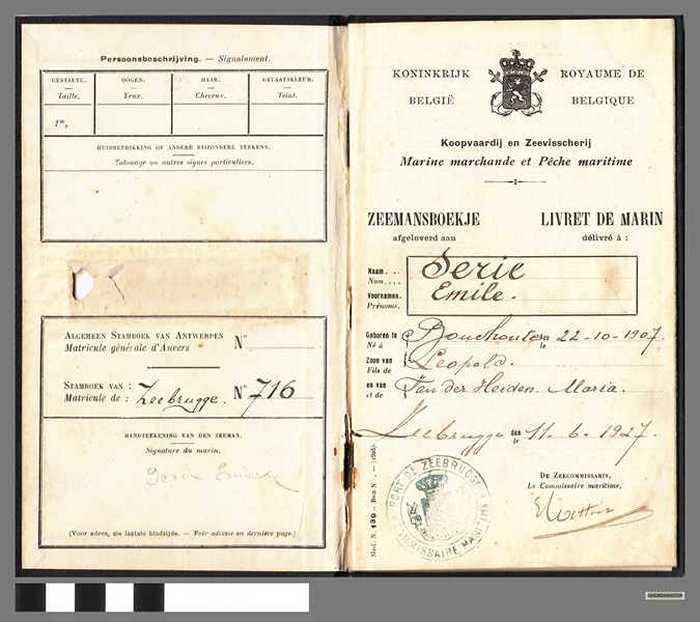 Persoonsbeschrijving. — Signalement.
GESTALTE. OOGEN. HAAR. GELAATSKLEUR.
Taille. Yeux. Cheveux. Teint.
1m,
HUIDBEPRIKKING OF ANDERE BIJZONDERE TEEKENS.
Tatouage ou autres signes particuliers.
ALGEMEEN STAMBOEK VAN ANTWERPEN
Matricule générale d'Anvers N°
STAMBOEK VAN :
Matricule de : Zeebrugge. N° 716
HANDTEEKENING VAN DEN ZEEMAN.
Signature du marin.
(Voor adres, zie laatste bladzijde. — Voir adresse en dernière page.)
KONINKRIJK ROYAUME DE
BELGIË BELGIQUE
Koopvaardij en Zeevisscherij
Marine marchande et Pêche maritime
ZEEMANSBOEKJE LIVRET DE MARIN
afgeleverd aan délivré à :
Naam . . . Serie
Nom. . . .
Voornamen. Emile.
Prénoms.
Geboren te Bouchoute den 22-10-1907.
Né à le
Zoon van Leopold.
Fils de
en van Van der Heiden Maria.
et de
Zeebrugge den 11-6-1927.
le
DE ZEECOMMISSARIS,
Le Commissaire maritime,
PORT DE ZEEBRUGGE
COMMISSAIRE MARITIME
Mod. N. 130